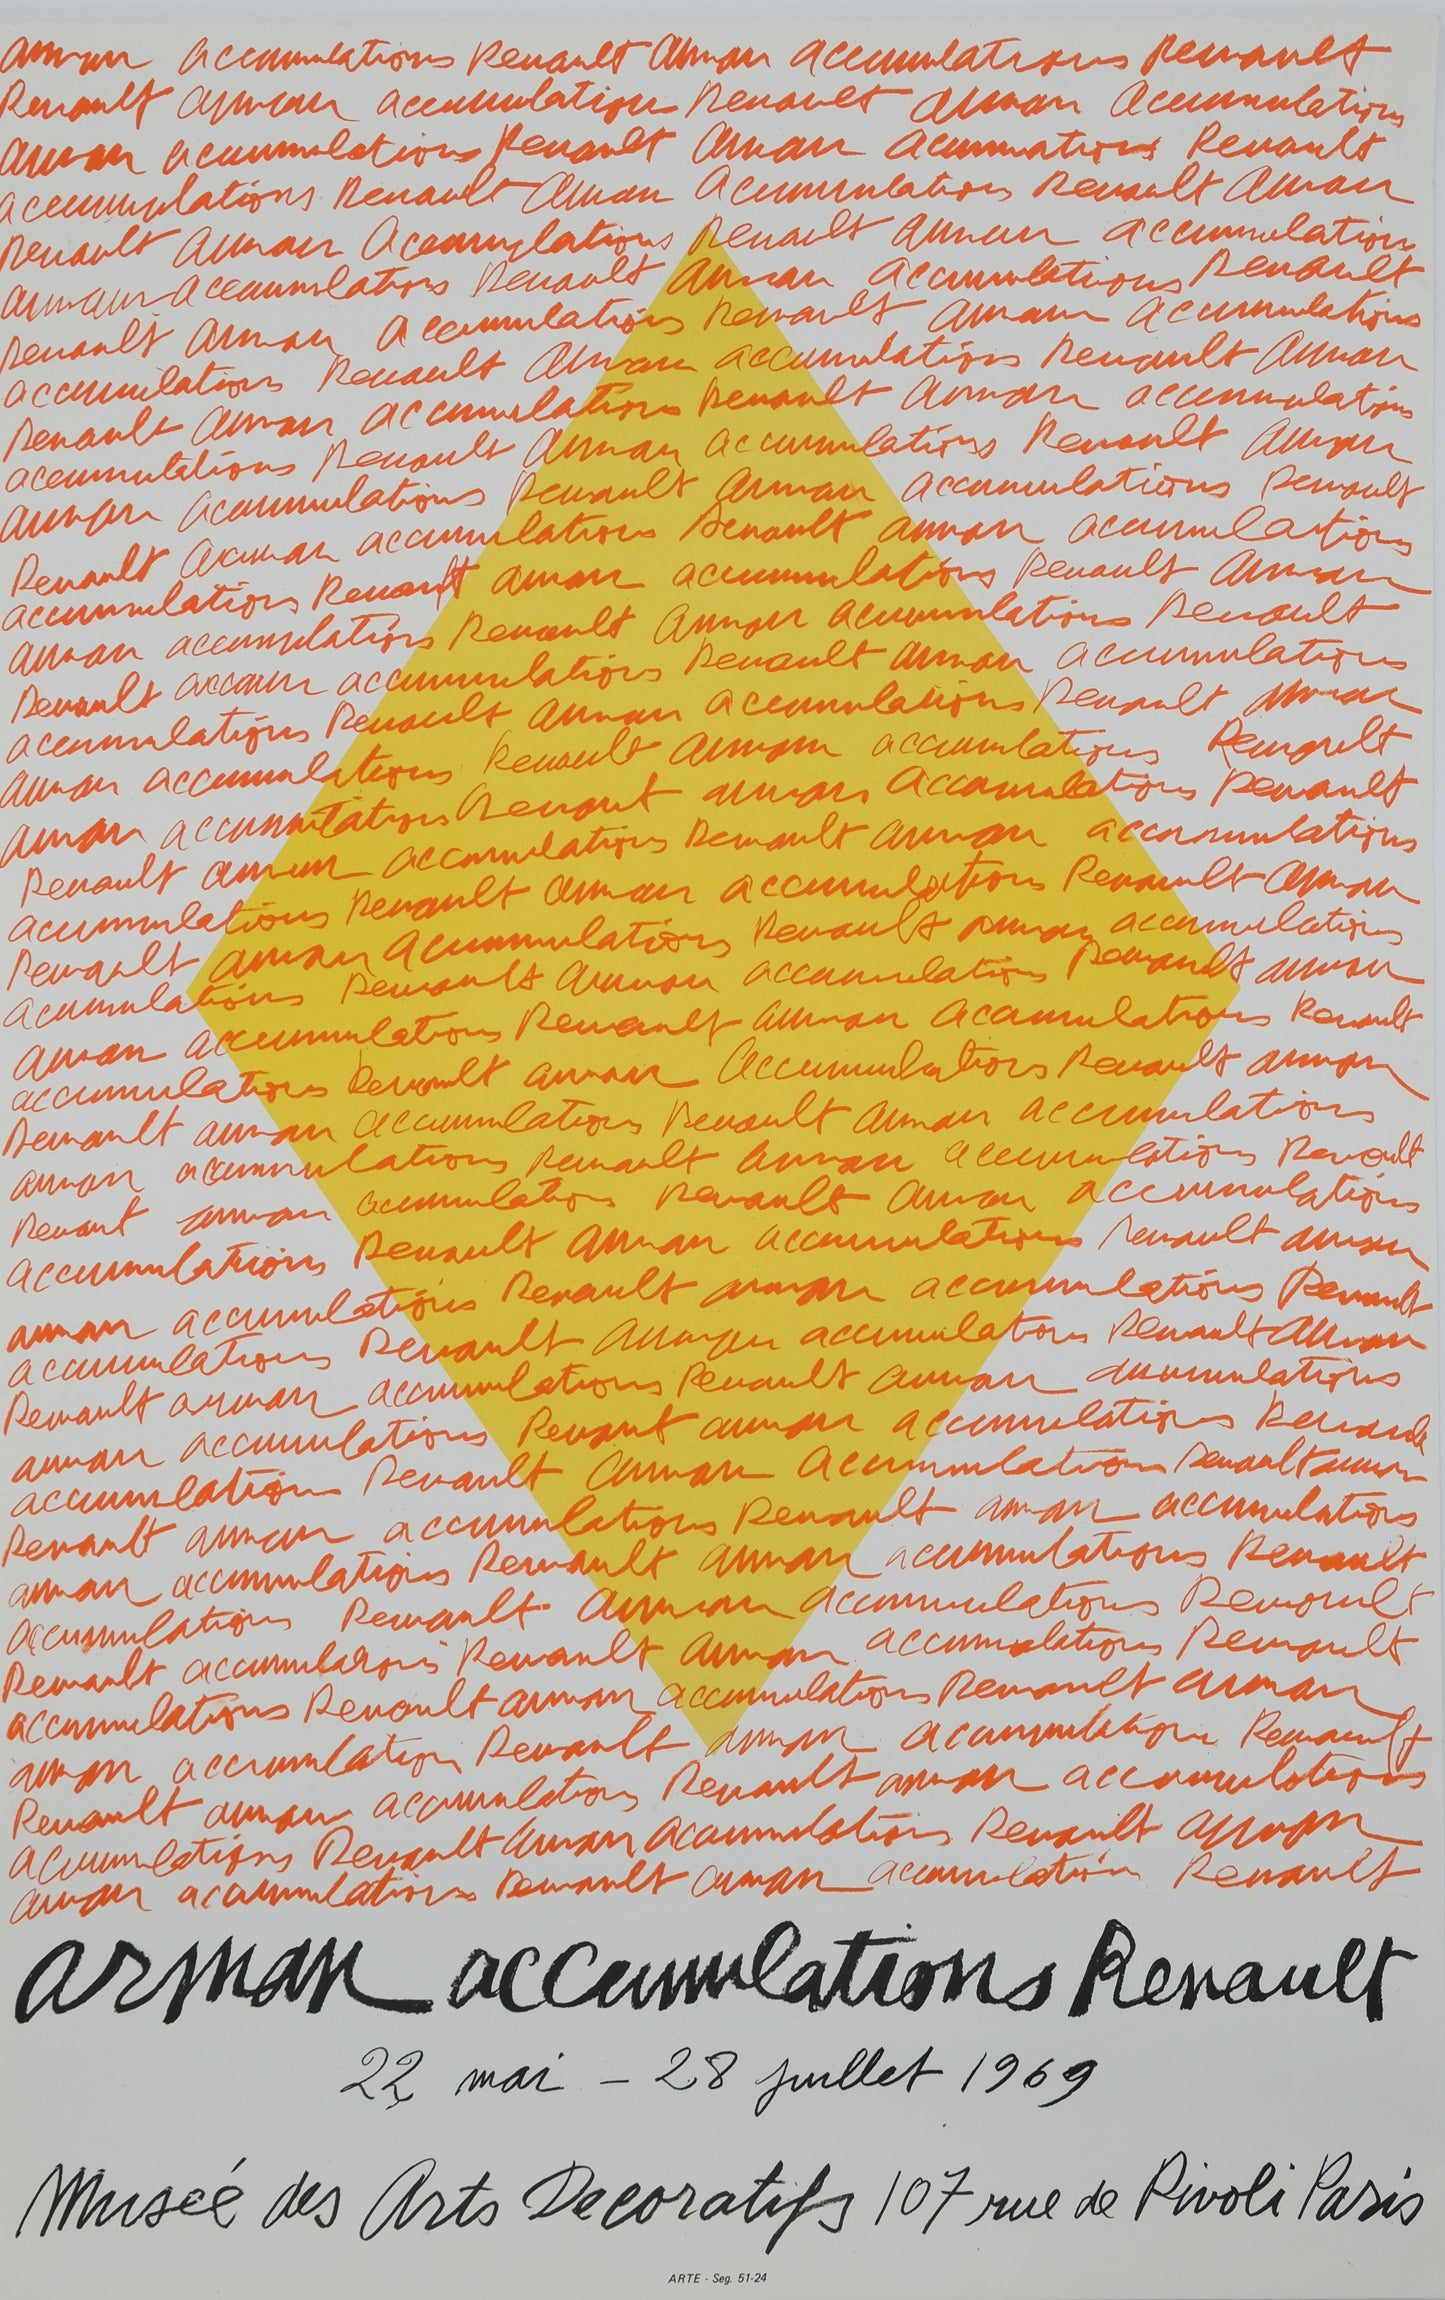 arman accumulations Renault arman accumulations Renault
Renault arman accumulations Renault arman accumulations
arman accumulations Renault arman accumations Renault
accumulations Renault arman accumulations Renault arman
Renault arman accumulations Renault arman accumulations
arman accumulations Renault arman accumulations Renault
Renault arman accumulations Renault arman accumulations
accumulations Renault arman accumulations Renault arman
Renault arman accumulations Renault arman accumulations
accumulations Renault arman accumulations Renault arman
arman accumulations Renault arman accumulations Renault
Renault arman accumulations Renault arman accumulations
accumulations Renault arman accumulations Renault arman
arman accumulations Renault arman accumulations Renault
Renault accumulations Renault arman accumulations
accumulations Renault arman accumulations Renault arman
arman accumulations Renault arman accumulations Renault
arman accumulations Renault arman accumulations Renault
Renault arman accumulations Renault arman accumulations
accumulations Renault arman accumulations Renault arman
Renault arman accumulations Renault arman accumulations
accumulations Renault arman accumulations Renault arman
arman accumulations Renault arman accumulations Renault
accumulations Renault arman accumulations Renault arman
Renault arman accumulations Renault arman accumulations
arman accumulations Renault arman accumulations Renault
Renault arman accumulations Renault arman accumulations
accumulations Renault arman accumulations Renault arman
arman accumulations Renault arman accumulations Renault
accumulations Renault arman accumulations Renault arman
Renault arman accumulations Renault arman accumulations
arman accumulations Renault arman accumulations
accumulations Renault arman accumulations Renault arman
Renault arman accumulations Renault arman accumulations
arman accumulations Renault arman accumulations Renault
accumulations Renault arman accumulations Renault
Renault accumulations Renault arman accumulations Renault
accumulations Renault arman accumulations Renault arman
arman accumulations Renault arman accumulations Renault
Renault arman accumulations Renault arman accumulations
accumulations Renault arman accumulations Renault arman
arman accumulations Renault arman accumulations Renault
arman accumulations Renault
22 mai – 28 juillet 1969
Musée des Arts Decoratifs 107 rue de Rivoli Paris
ARTE - Seg. 51-24